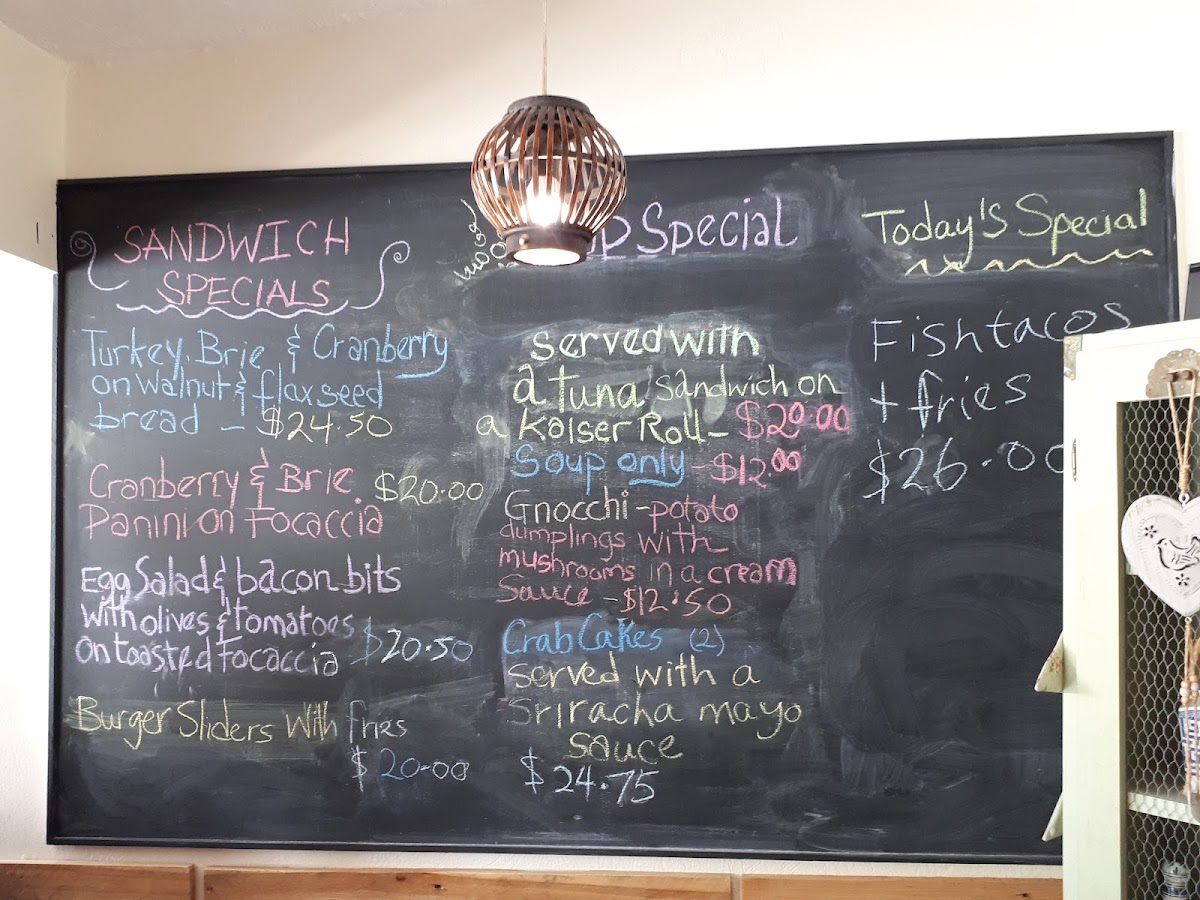 SANDWICH
SPECIALS
Turkey, Brie, & Cranberry
on walnut & flaxseed
bread - $24.50
Cranberry & Brie $20.00
Panini on Focaccia
Egg Salad & bacon bits
with olives & tomatoes
on toasted Focaccia $20.50
Burger Sliders With fries
$20.00
Special
Served with
a tuna sandwich on
a Kaiser Roll - $20.00
Soup only - $12.00
Gnocchi - potato
dumplings with
mushrooms in a cream
Sauce - $12.50
Crab Cakes (2)
served with a
Sriracha mayo
sauce
$24.75
Today's Special
Fish tacos
+ fries
$26.00